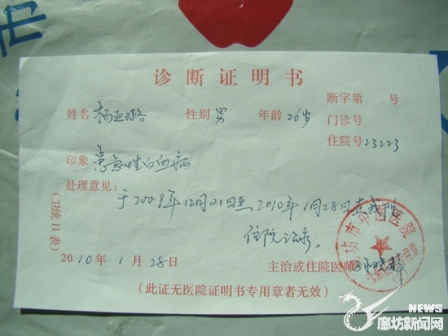 诊断证明书
断字第 号
姓名 杨亚璐 性别 男 年龄 26岁 门诊号
住院号 23223
印象 患急性白血病
处理意见:
于2009年12月21日至2010年1月28日在我院
住院治疗。
(卫统11表)
2010年1月28日 主治或住院医师
(此证无医院证明书专用章者无效)
坊市中医医院
NEWS
廊坊新闻网